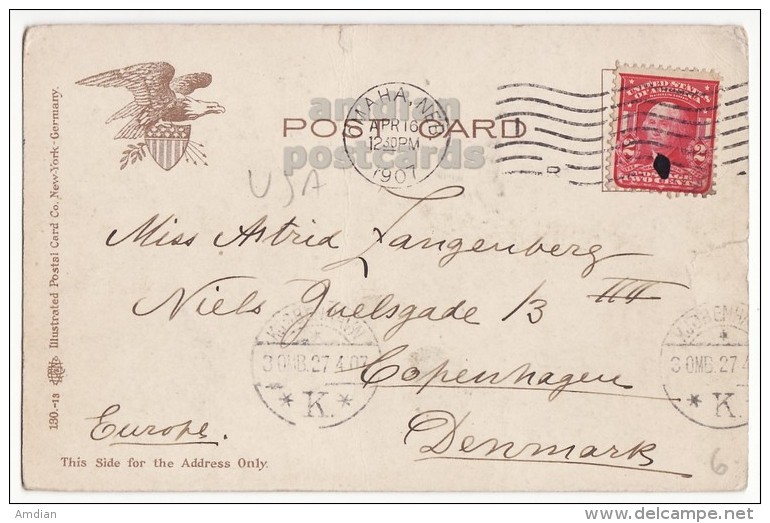 UNITED STATES
OF AMERICA
OMAHA, NEB.
APR 16
12 30 PM
1907
POST CARD
amdian
postcards
R
2 2
TWO CENTS
USA
Illustrated Postal Card Co., New-York-Germany.
130.-13
Miss Astrid Langenberg
Niels Juelsgade 1/3 IIII
KJØBENHAVN
3 OMB. 27 4 07
* K. *
KJØBENHAVN
3 OMB. 27 4
* K.
Copenhagen
Europe.
Denmark
This Side for the Address Only.
6
Amdian
http://www.delcampe.net